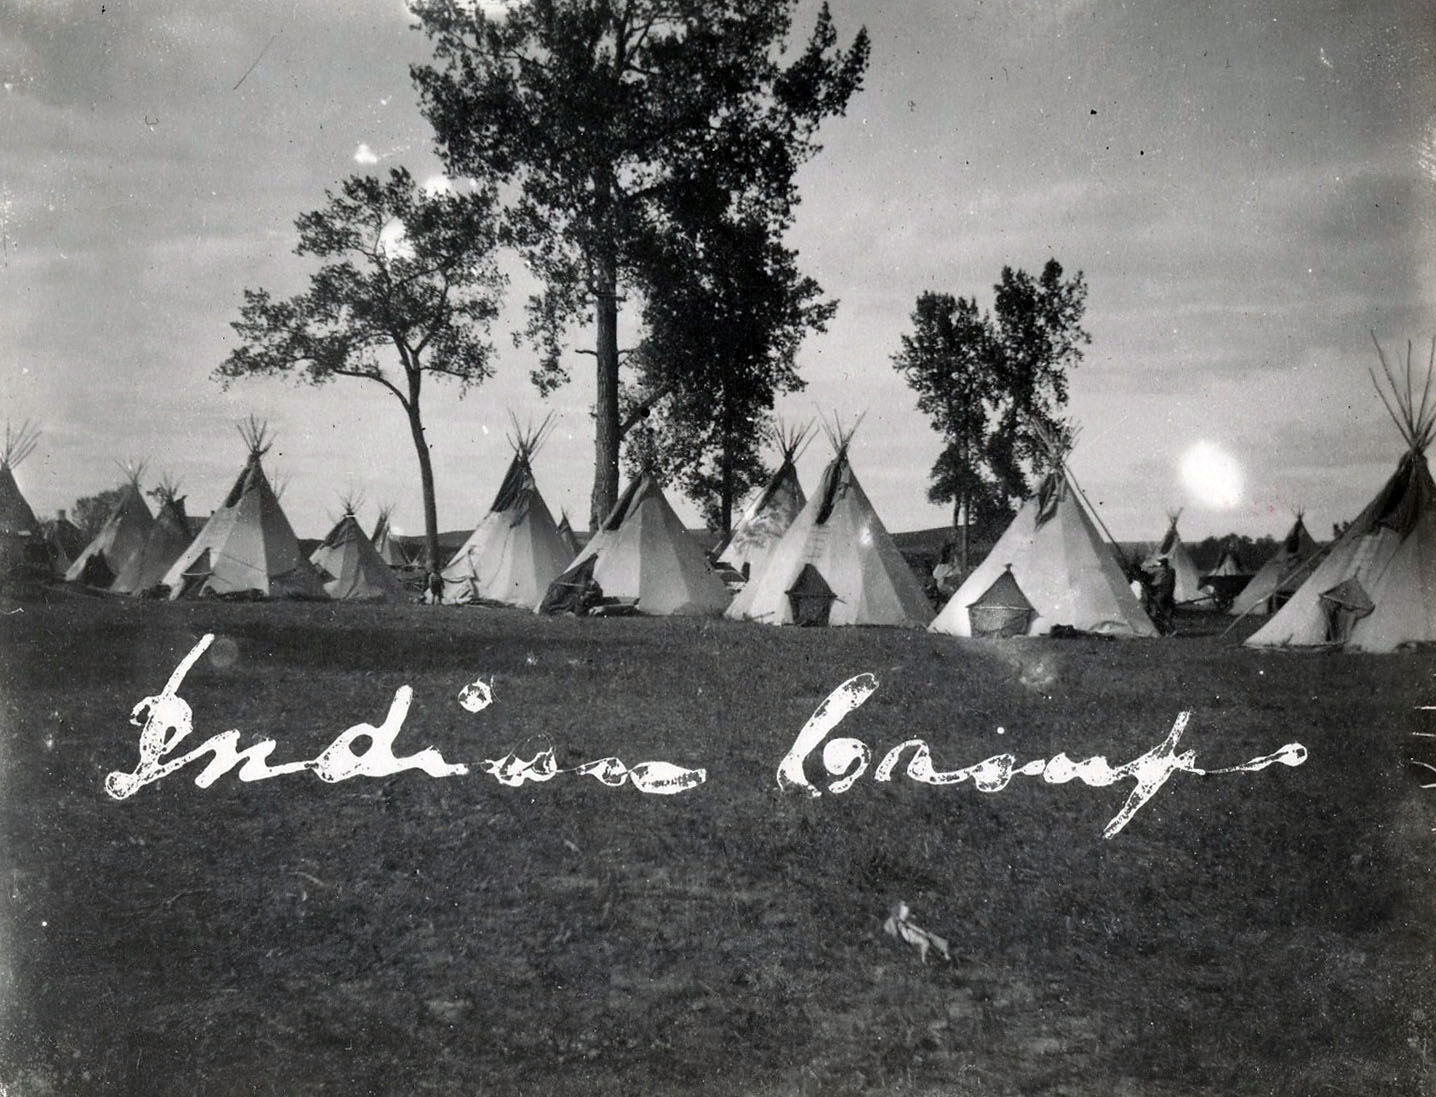 Indian Camp